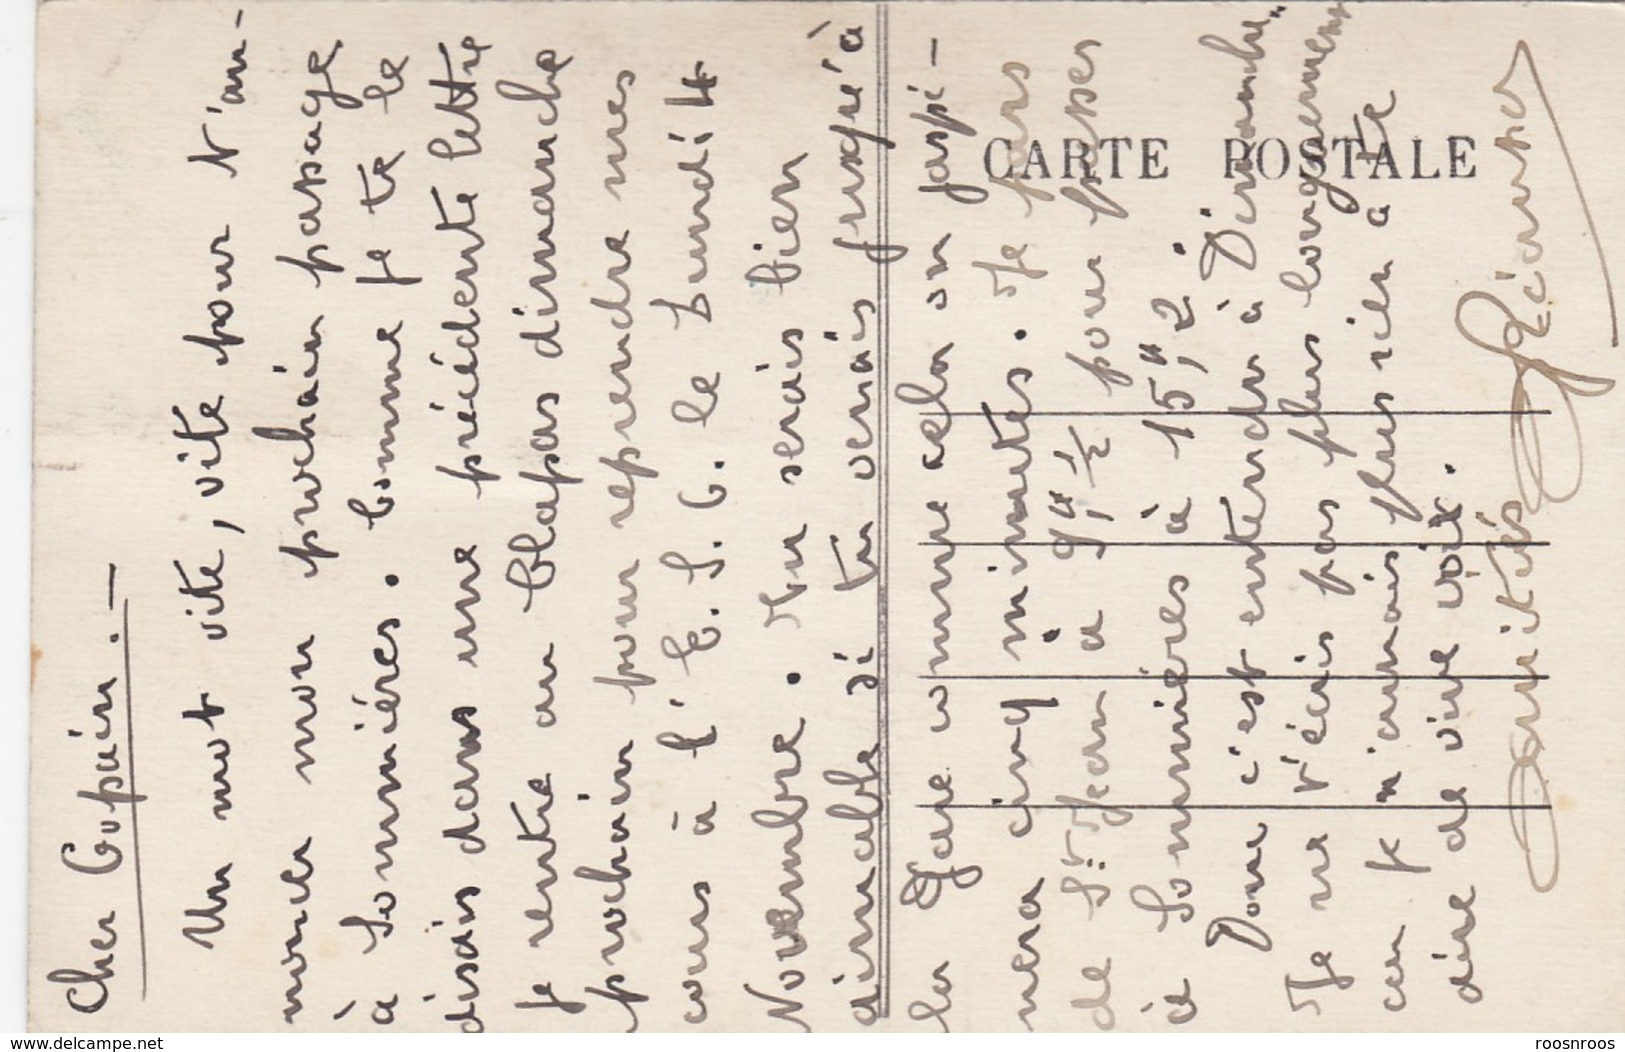 Cher Copain. —
Un mot vite, vite pour t'an-
noncer mon prochain passage
à Sommières. Comme je te le
disais dans une précédente lettre
je rentre au Clapas dimanche
prochain pour reprendre mes
cours à l'E.S.C. le Lundi 4
Novembre. Tu serais bien
aimable si tu venais jusqu'à
la Gare comme cela on jaspi-
nera cinq minutes. Je pars
de St Jean à 9h½ pour passer
à Sommières à 15h,12.
Donc c'est entendu à Dimanche.
Je ne t'écris pas plus longuement
car je n'aurais plus rien à te
dire de vive voix.
Amitiés
CARTE POSTALE
www.delcampe.net
roosnroos